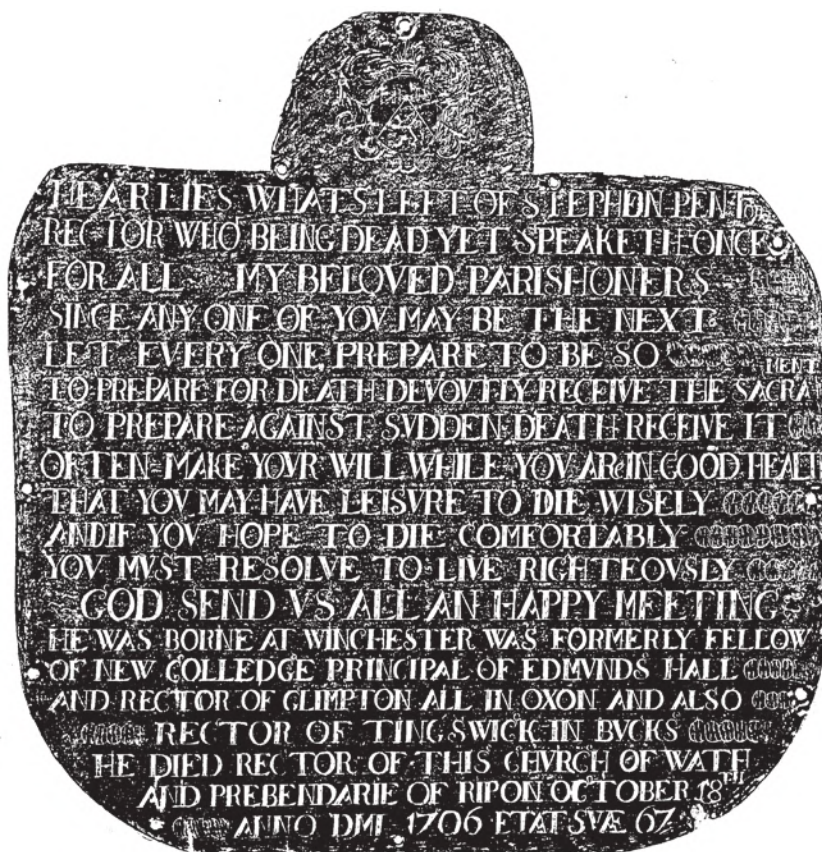 HEAR LIES WHATS LEFT OF STEPHEN PENTON
RECTOR WHO BEING DEAD YET SPEAKETH ONCE
FOR ALL MY BELOVED PARISHONERS
SINCE ANY ONE OF YOV MAY BE THE NEXT
LET EVERY ONE PREPARE TO BE SO
TO PREPARE FOR DEATH DEVOVTLY RECEIVE THE SACRAMENT
TO PREPARE AGAINST SVDDEN DEATH RECEIVE IT
OFTEN=MAKE YOVR WILL WHILE YOV ARe IN GOOD HEALT
THAT YOV MAY HAVE LEISVRE TO DIE WISELY
AND IF YOV HOPE TO DIE COMFORTABLY
YOV MVST RESOLVE TO LIVE RIGHTEOVSLY
GOD SEND VS ALL AN HAPPY MEETING
HE WAS BORNE AT WINCHESTER WAS FORMERLY FELLOW
OF NEW COLLEDGE PRINCIPAL OF EDMVNDS HALL
AND RECTOR OF GLIMPTON ALL IN OXON AND ALSO
RECTOR OF TINGSWICK IN BVCKS
HE DIED RECTOR OF THIS CHVRCH OF WATH
AND PREBENDARIE OF RIPON OCTOBER 18TH
ANNO DMI 1706 ETAT SVÆ 67